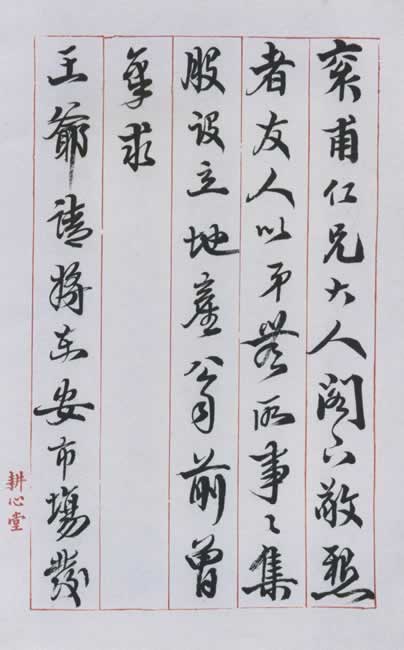 奕甫仁兄大人閣下敬懇
者友人以弟無所事〻集
股設立地產公司前曾
奉求
王爺請將東安市場發
耕心堂